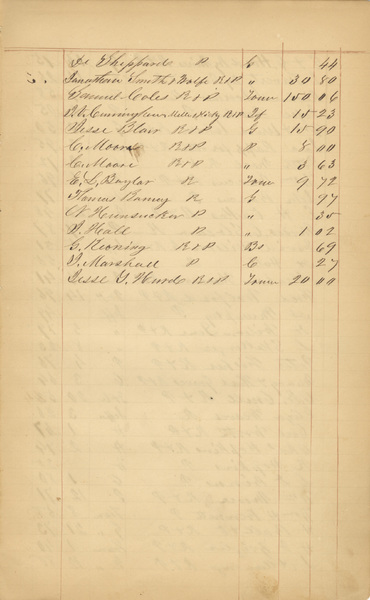 Sheppard P C 44
Jonathan Smith & Wolfe R&P " 30 80
Samuel Coles R&P Town 150 06
Cunningham Miller & Kirby R&P 15 23
Jesse Blair R&P G 15 90
C. Moore P P 8 00
C. Moore R&P " 3 63
E. L. Baylor R Town 9 72
Thomas Barney R G 97
N Hunsucker P " 35
J. Hall P " 1 02
G. R&P Bs 69
J. Marshall P C 27
Jesse G. Hurd R&P Town 20 00